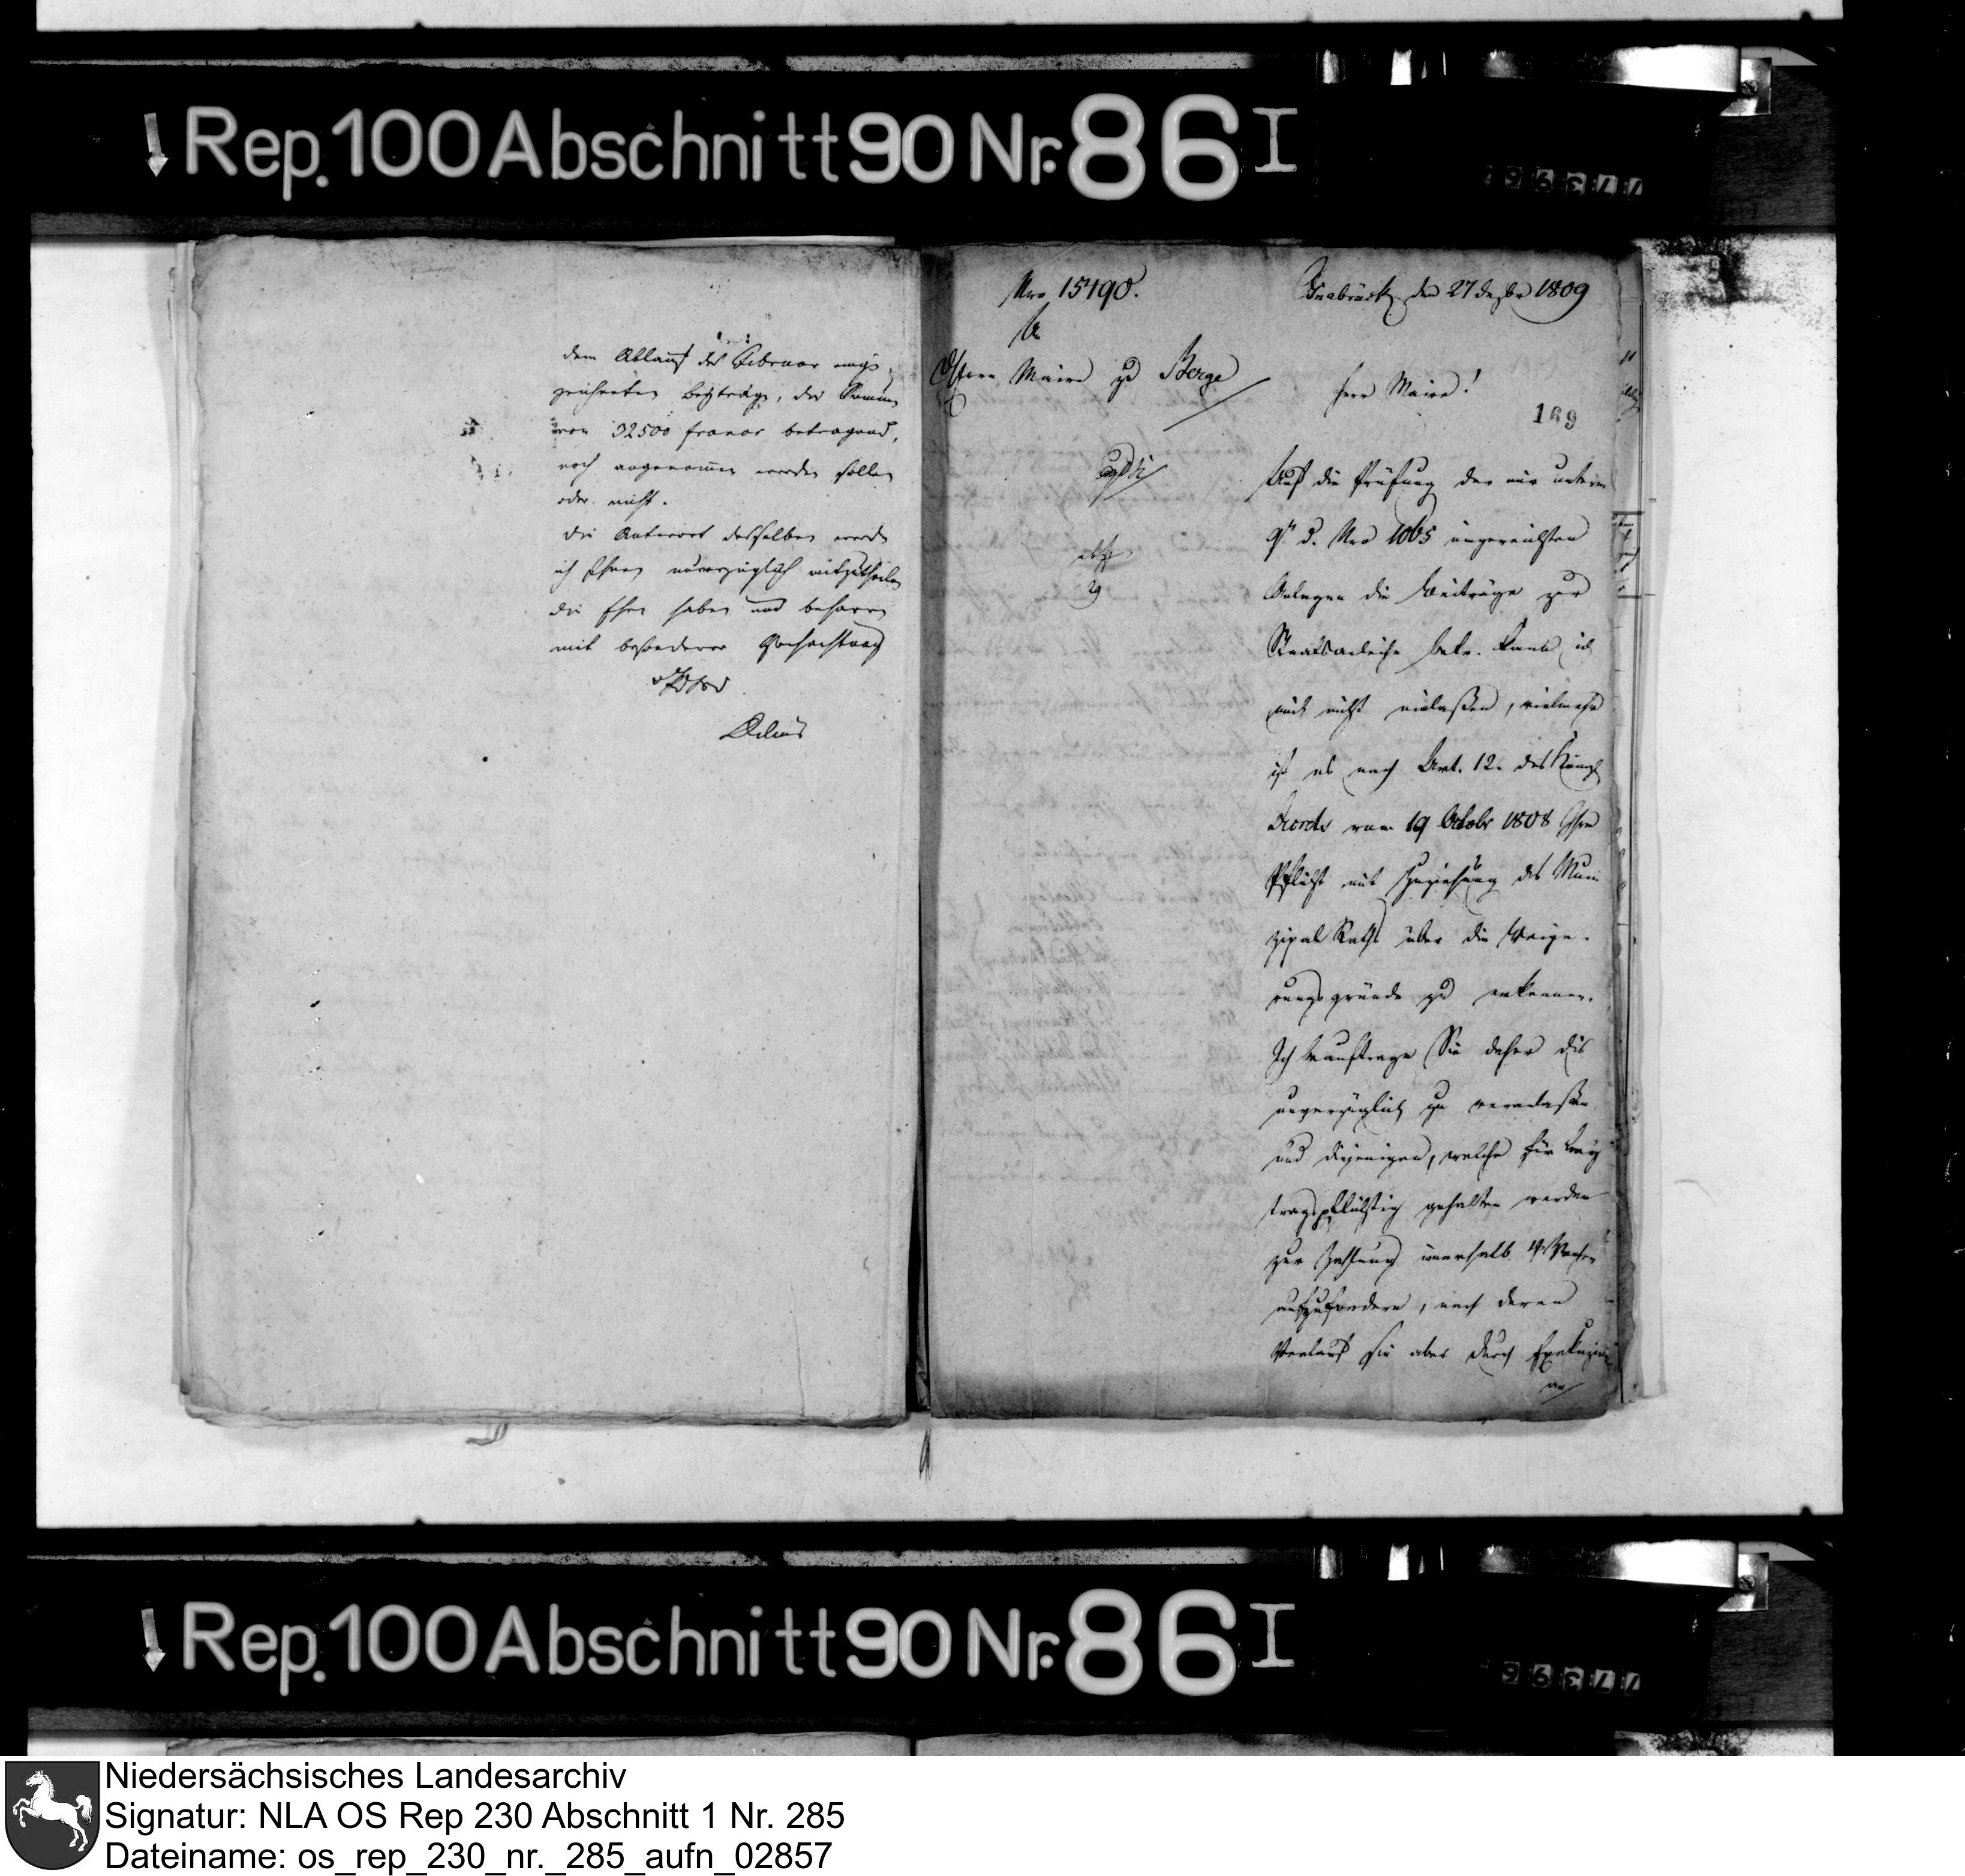 Rep. 100 Abschnitt 90 Nr. 86 I
77396
dem Ablauf des Februar ein
zeichneten Beyträge, der Summe
von 32500 francs betragend,
noch angenommen werden sollen
oder nicht.
Die Antwort desselben werde
ich Ihnen unverzüglich mitzutheilen
die Ehre haben und beharre
mit besonderer Hochachtung
Delius
Nro 15490.
An
Herrn Maire zu Berge
29
Osnabrück den 27 Dezbr 1809
Herr Maire!
169
Auf die Prüfung der mir unterm
9n d. Nro 1065 eingereichten
Anlagen die Beiträge zur
Staatsanleihe betr. kann ich
mich nicht einlaßen, vielmehr
ist es nach Art. 12. des Königl
Decrets vom 19 Octobr 1808 Ihre
Pflicht mit Zuziehung des Muni
zipal Raths über die Weige-
rungsgründe zu erkennen.
Ich beauftrage Sie daher dies
unverzüglich zu veranlaßen
und diejenigen, welche für bey
tragspflichtig gehalten werden
zur Zahlung innerhalb 4 Wochen
aufzufordern, nach deren
Verlauf sie aber durch Exekuzion
an
Rep. 100 Abschnitt 90 Nr. 86 I
77396
Niedersächsisches Landesarchiv
Signatur: NLA OS Rep 230 Abschnitt 1 Nr. 285
Dateiname: os_rep_230_nr._285_aufn_02857